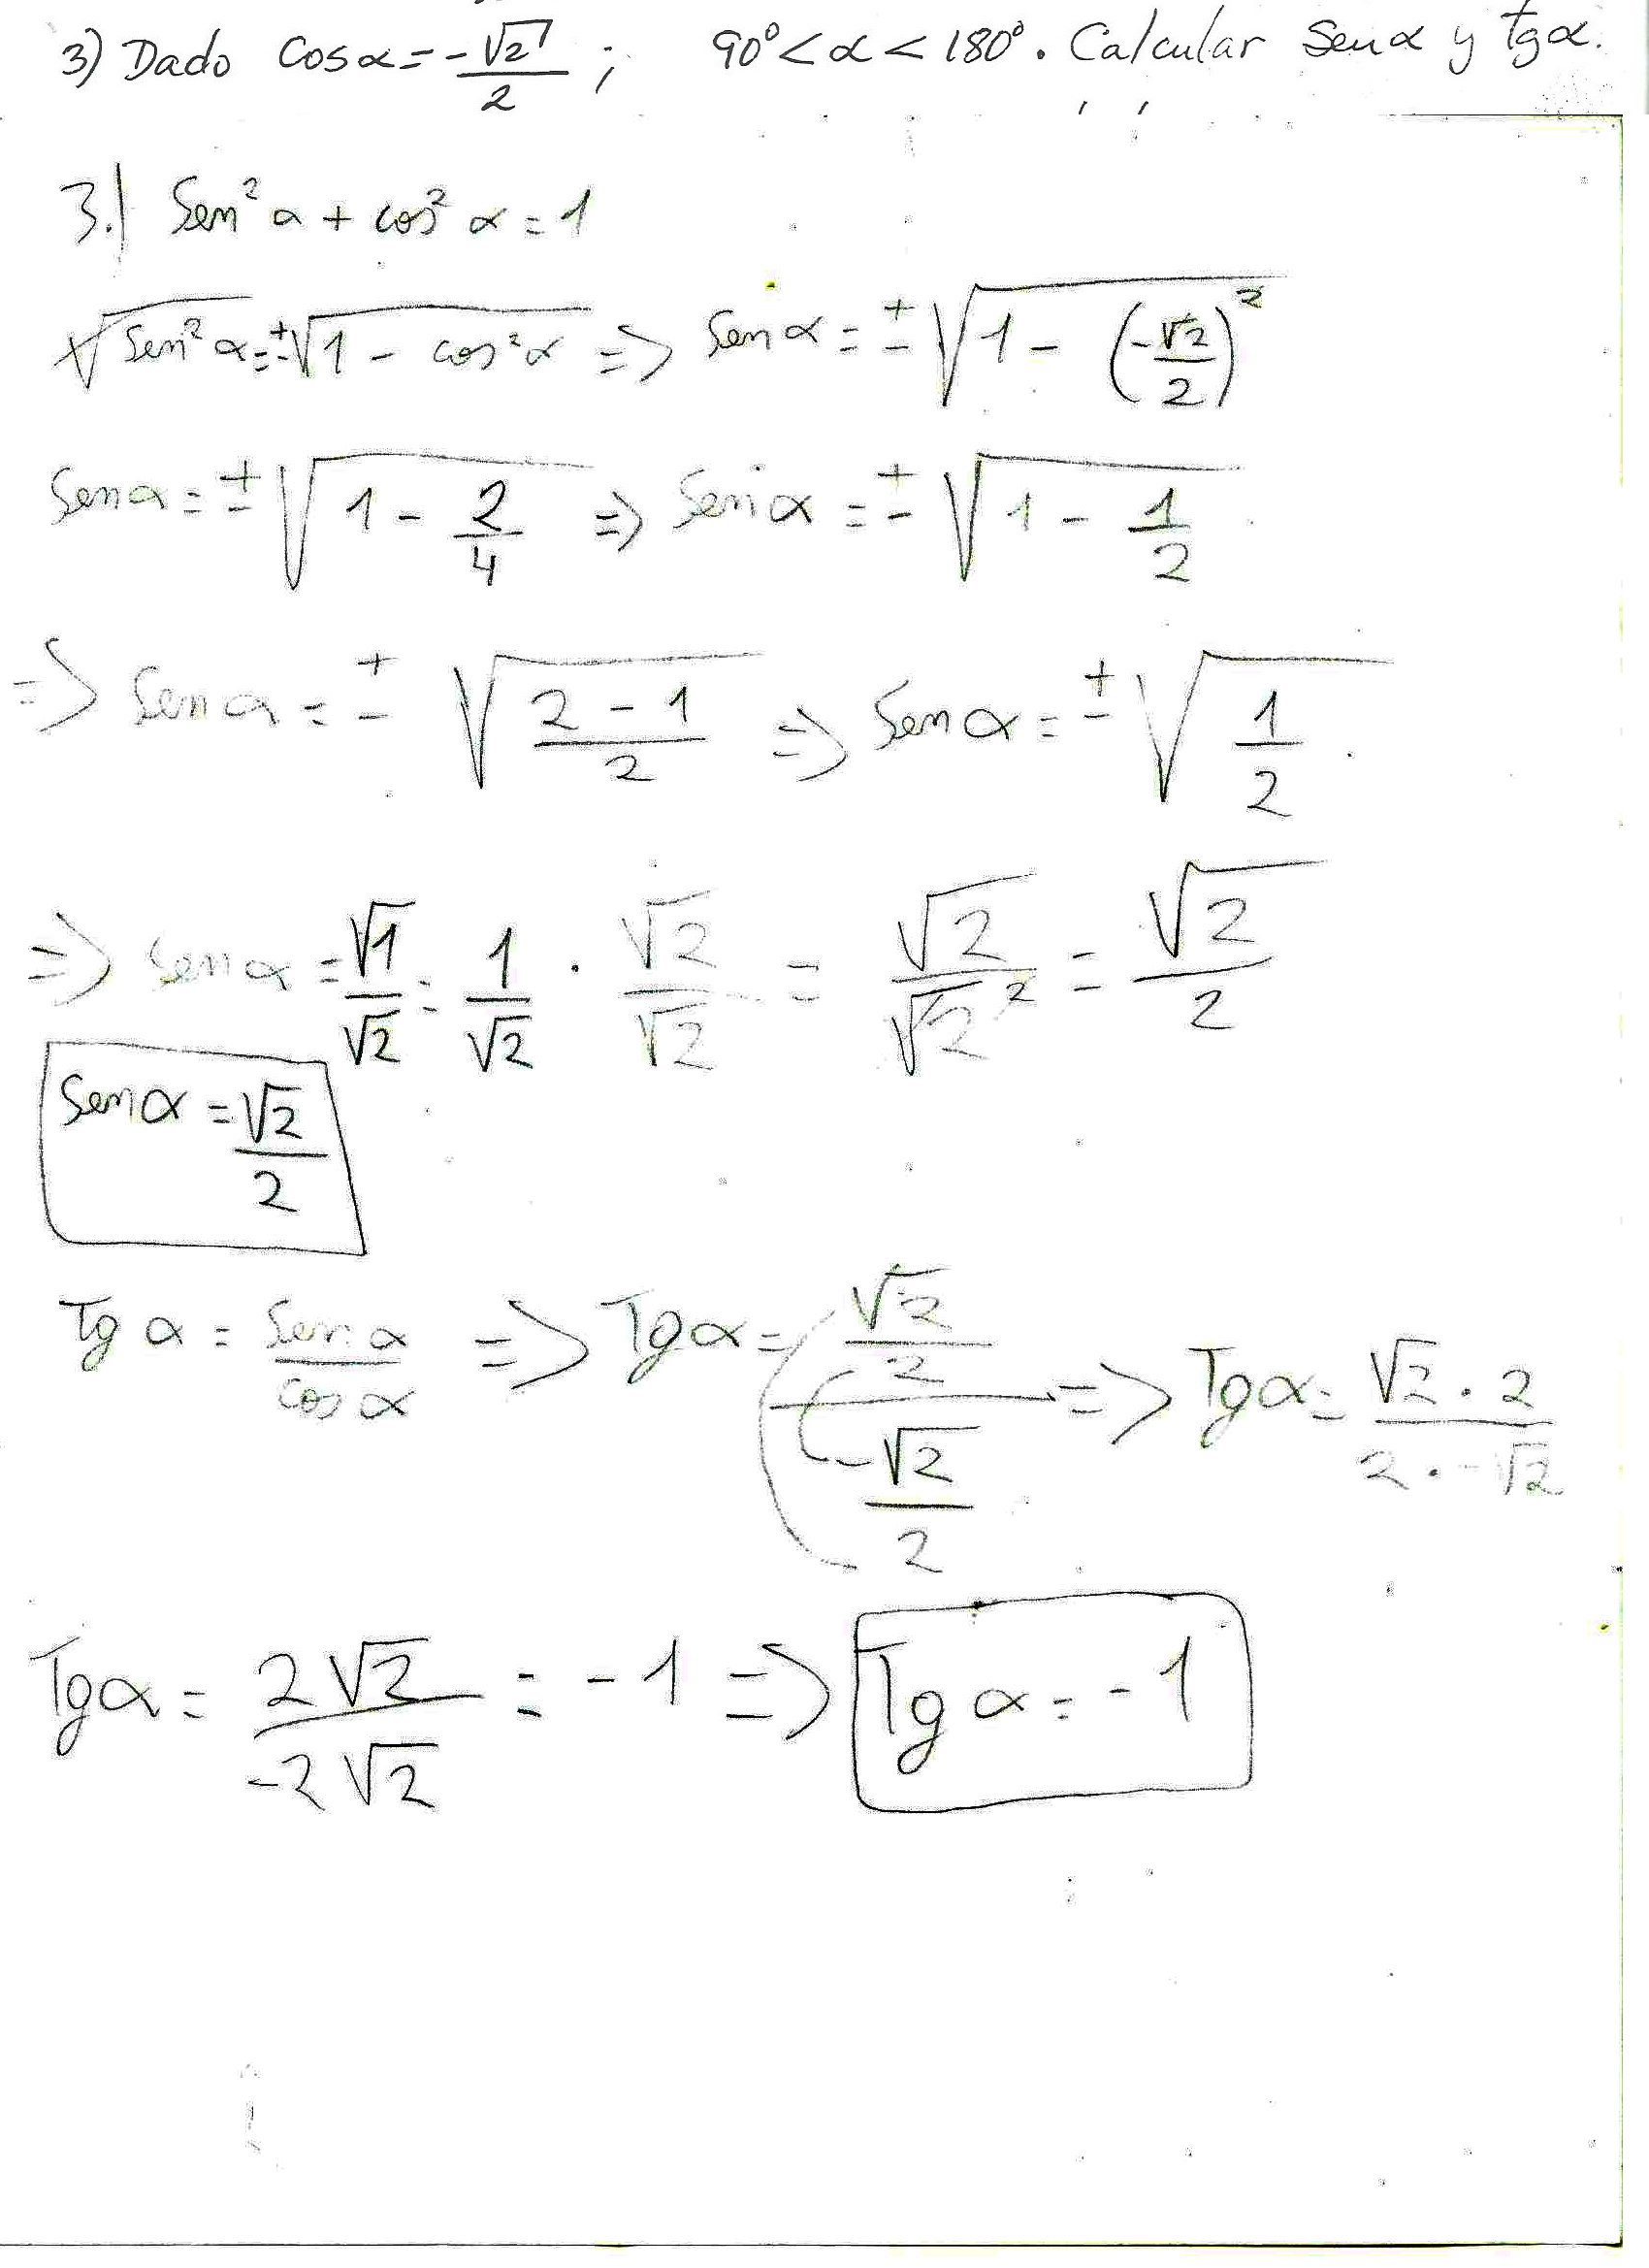 3) Dado Cosα = -√2/2 ; 90° < α < 180° . Calcular Senα y tgα.
3.| Sen² α + cos² α = 1
√Sen² α = ±√1 - cos² α => Sen α = ± √1 - (-√2/2)²
Sen α = ± √1 - 2/4 => Sen α = ± √1 - 1/2
=> Sen α = ± √2 - 1/2 => Sen α = ± √1/2
=> Sen α = √1/√2 = 1/√2 · √2/√2 = √2/√2² = √2/2
Sen α = √2/2
Tg α = Sen α/cos α => Tg α = √2/2/-√2/2 => Tg α = √2 · 2/2 · -√2
Tg α = 2√2/-2√2 = -1 => Tg α = -1